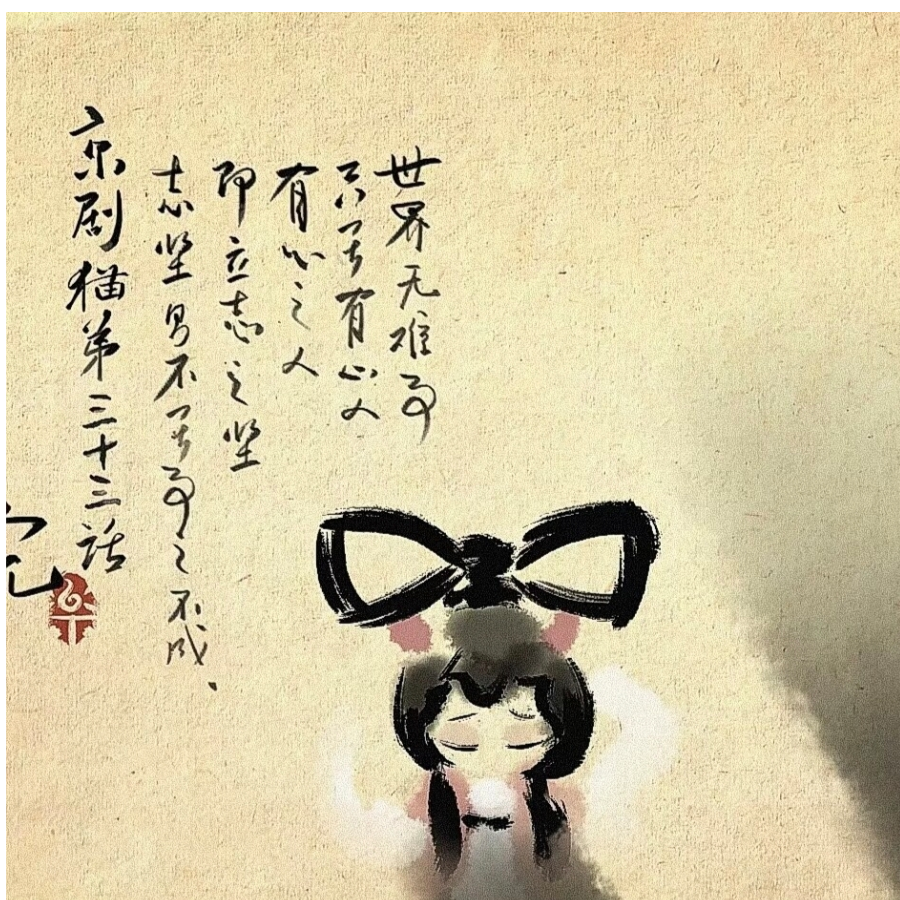 世界无难事
只畏有心人
有心之人
即立志之坚
志坚不畏事之不成
京剧猫第三十三话